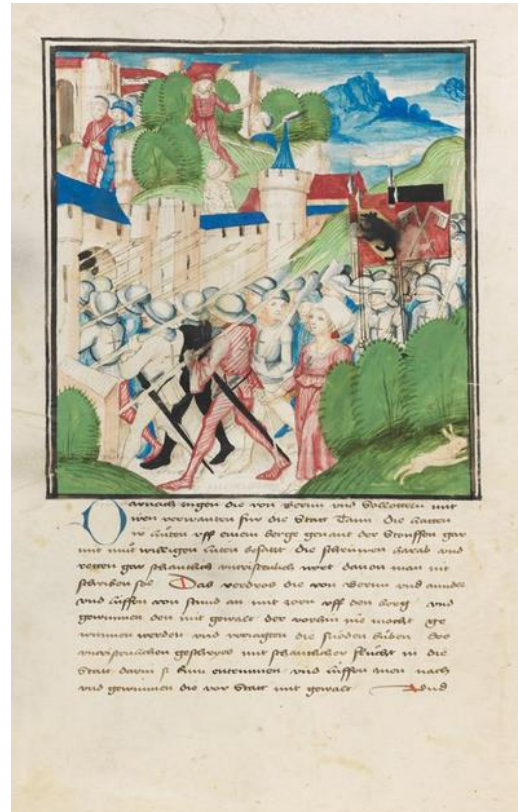 Darnach zugen die von Bernn und Sollottern mit
iren verwanten für die Statt Tann Die hatten
ir lüten uff einem berge genant der Stouffen gar
mit mutwilligen lüten besatzt die schruwen harab und
retten gar schantlich uncristenlich wort davon man nit
schriben sol Das verdros die von Bernn und ander
und luffen von stund an mit zorn uff den berg und
gewunnen den mit gewalt der vorhin nie mocht ge
wunnen werden und veriagten die snöden buben des
uncristenlichen geschreyes mit schantlicher flucht in die
Statt darin si kum entrunnen und luffen inen nach
und gewunnen die vor Statt mit gewalt Und